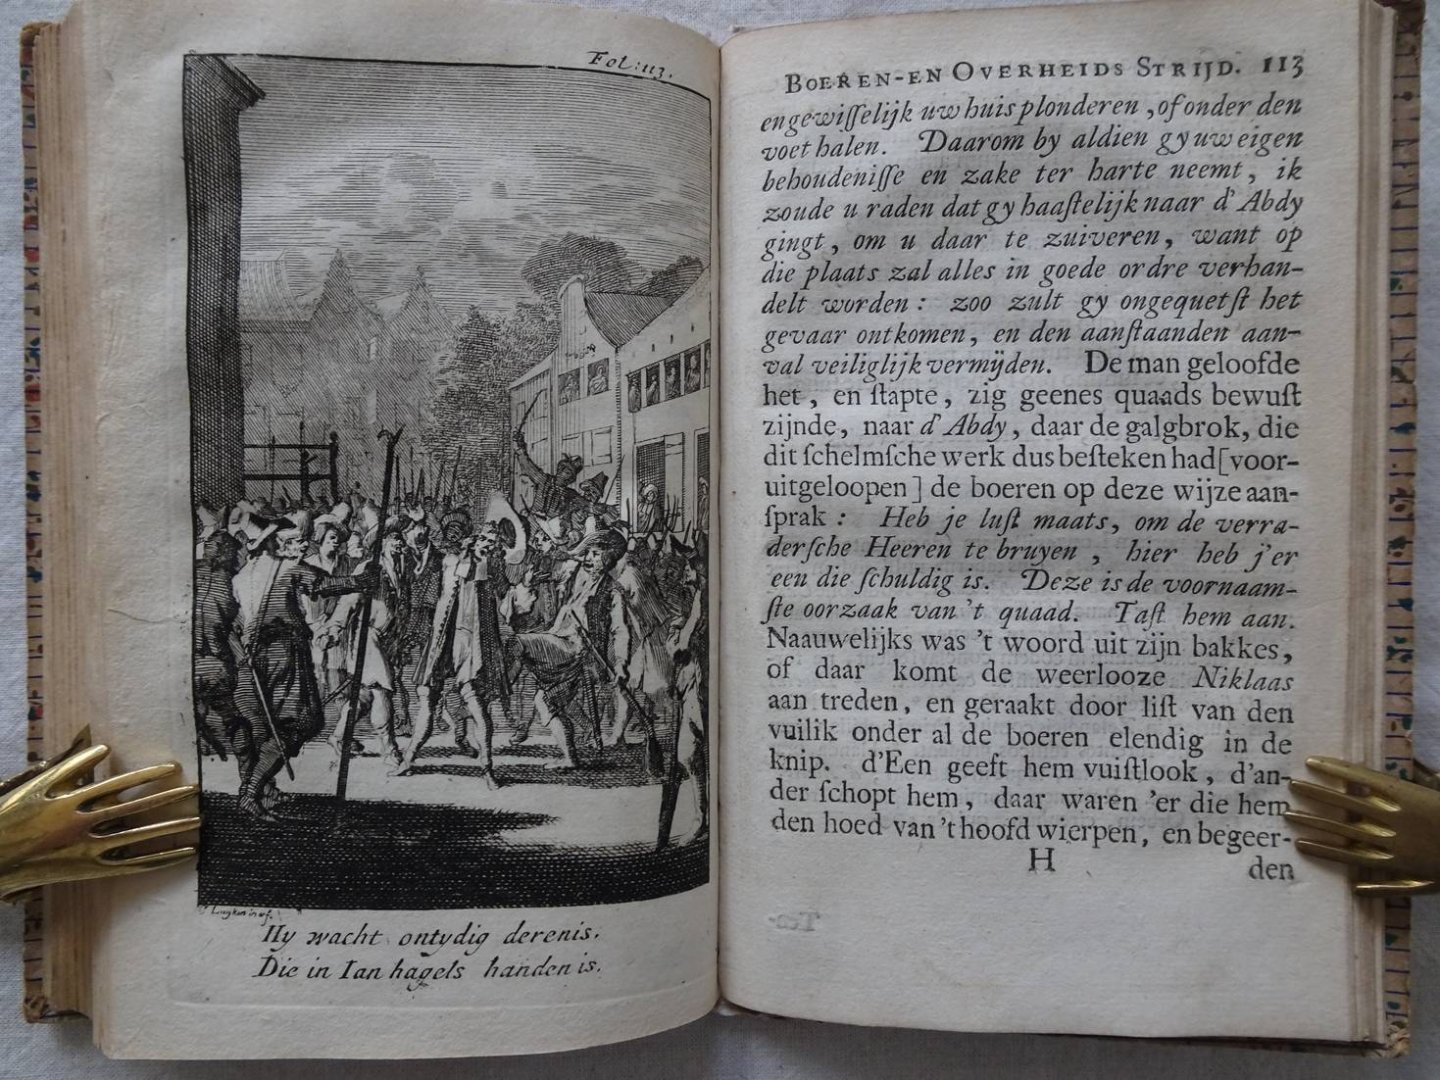 Fol: 113.
J Luyken inv. f.
Hy wacht ontydig derenis.
Die in Ian hagels handen is.
BOEREN-EN OVERHEIDS STRIJD. 113
en gewiſſelijk uw huis plonderen, of onder den
voet halen. Daarom by aldien gy uw eigen
behoudeniſſe en zake ter harte neemt, ik
zoude u raden dat gy haaſtelijk naar d'Abdy
gingt, om u daar te zuiveren, want op
die plaats zal alles in goede ordre verhan-
delt worden: zoo zult gy ongequetſt het
gevaar ontkomen, en den aanſtaanden aan-
val veiliglijk vermijden. De man geloofde
het, en ſtapte, zig geenes quaads bewuſt
zijnde, naar d'Abdy, daar de galgbrok, die
dit ſchelmſche werk dus beſteken had [voor-
uitgeloopen] de boeren op deze wijze aan-
ſprak: Heb je luſt maats, om de verra-
derſche Heeren te bruyen, hier heb j'er
een die ſchuldig is. Deze is de voornaam-
ſte oorzaak van 't quaad. Taſt hem aan.
Naauwelijks was 't woord uit zijn bakkes,
of daar komt de weerlooze Niklaas
aan treden, en geraakt door liſt van den
vuilik onder al de boeren elendig in de
knip. d'Een geeft hem vuiſtlook, d'an-
der ſchopt hem, daar waren 'er die hem
den hoed van 't hoofd wierpen, en begeer-
H den